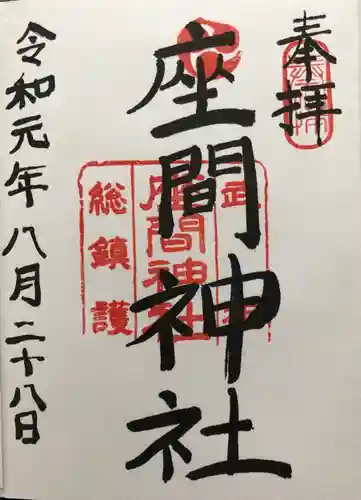 奉拝
座間神社
総鎮護
座間神社
令和元年八月二十八日